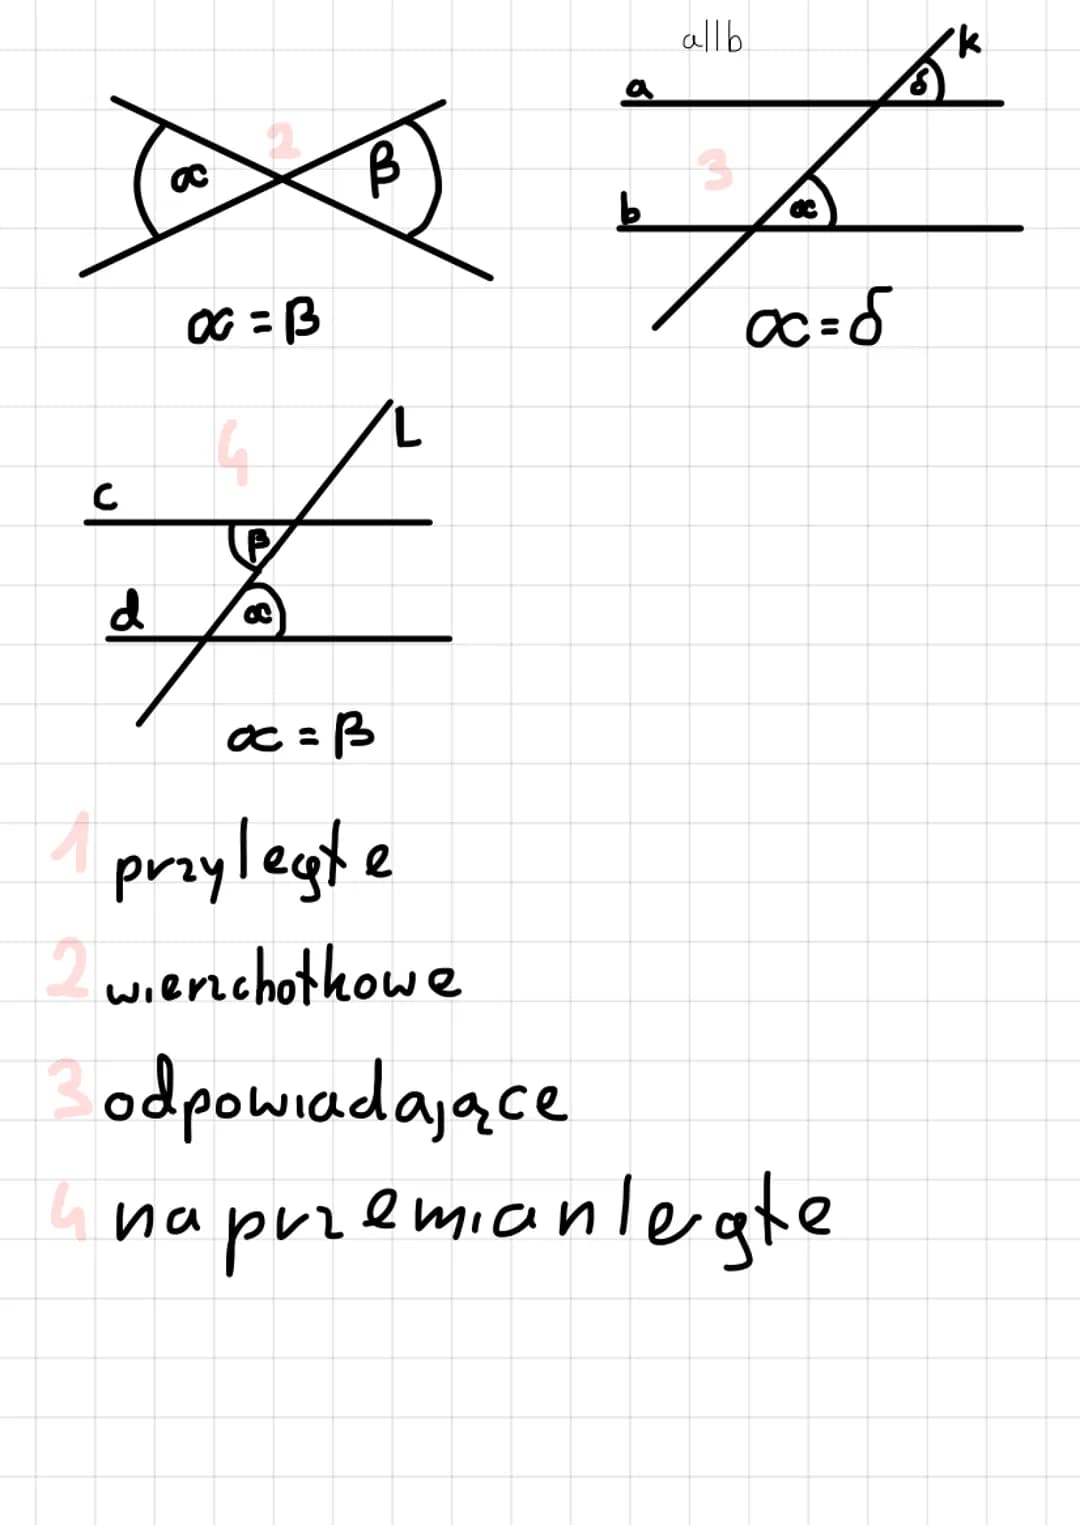 a||b
k
a
δ
2
α
β
3
b
α
α = β
α = δ
L
4
c
β
d
α
α = β
1 przyległe
2 wierzchołkowe
3 odpowiadające
4 naprzemianległe